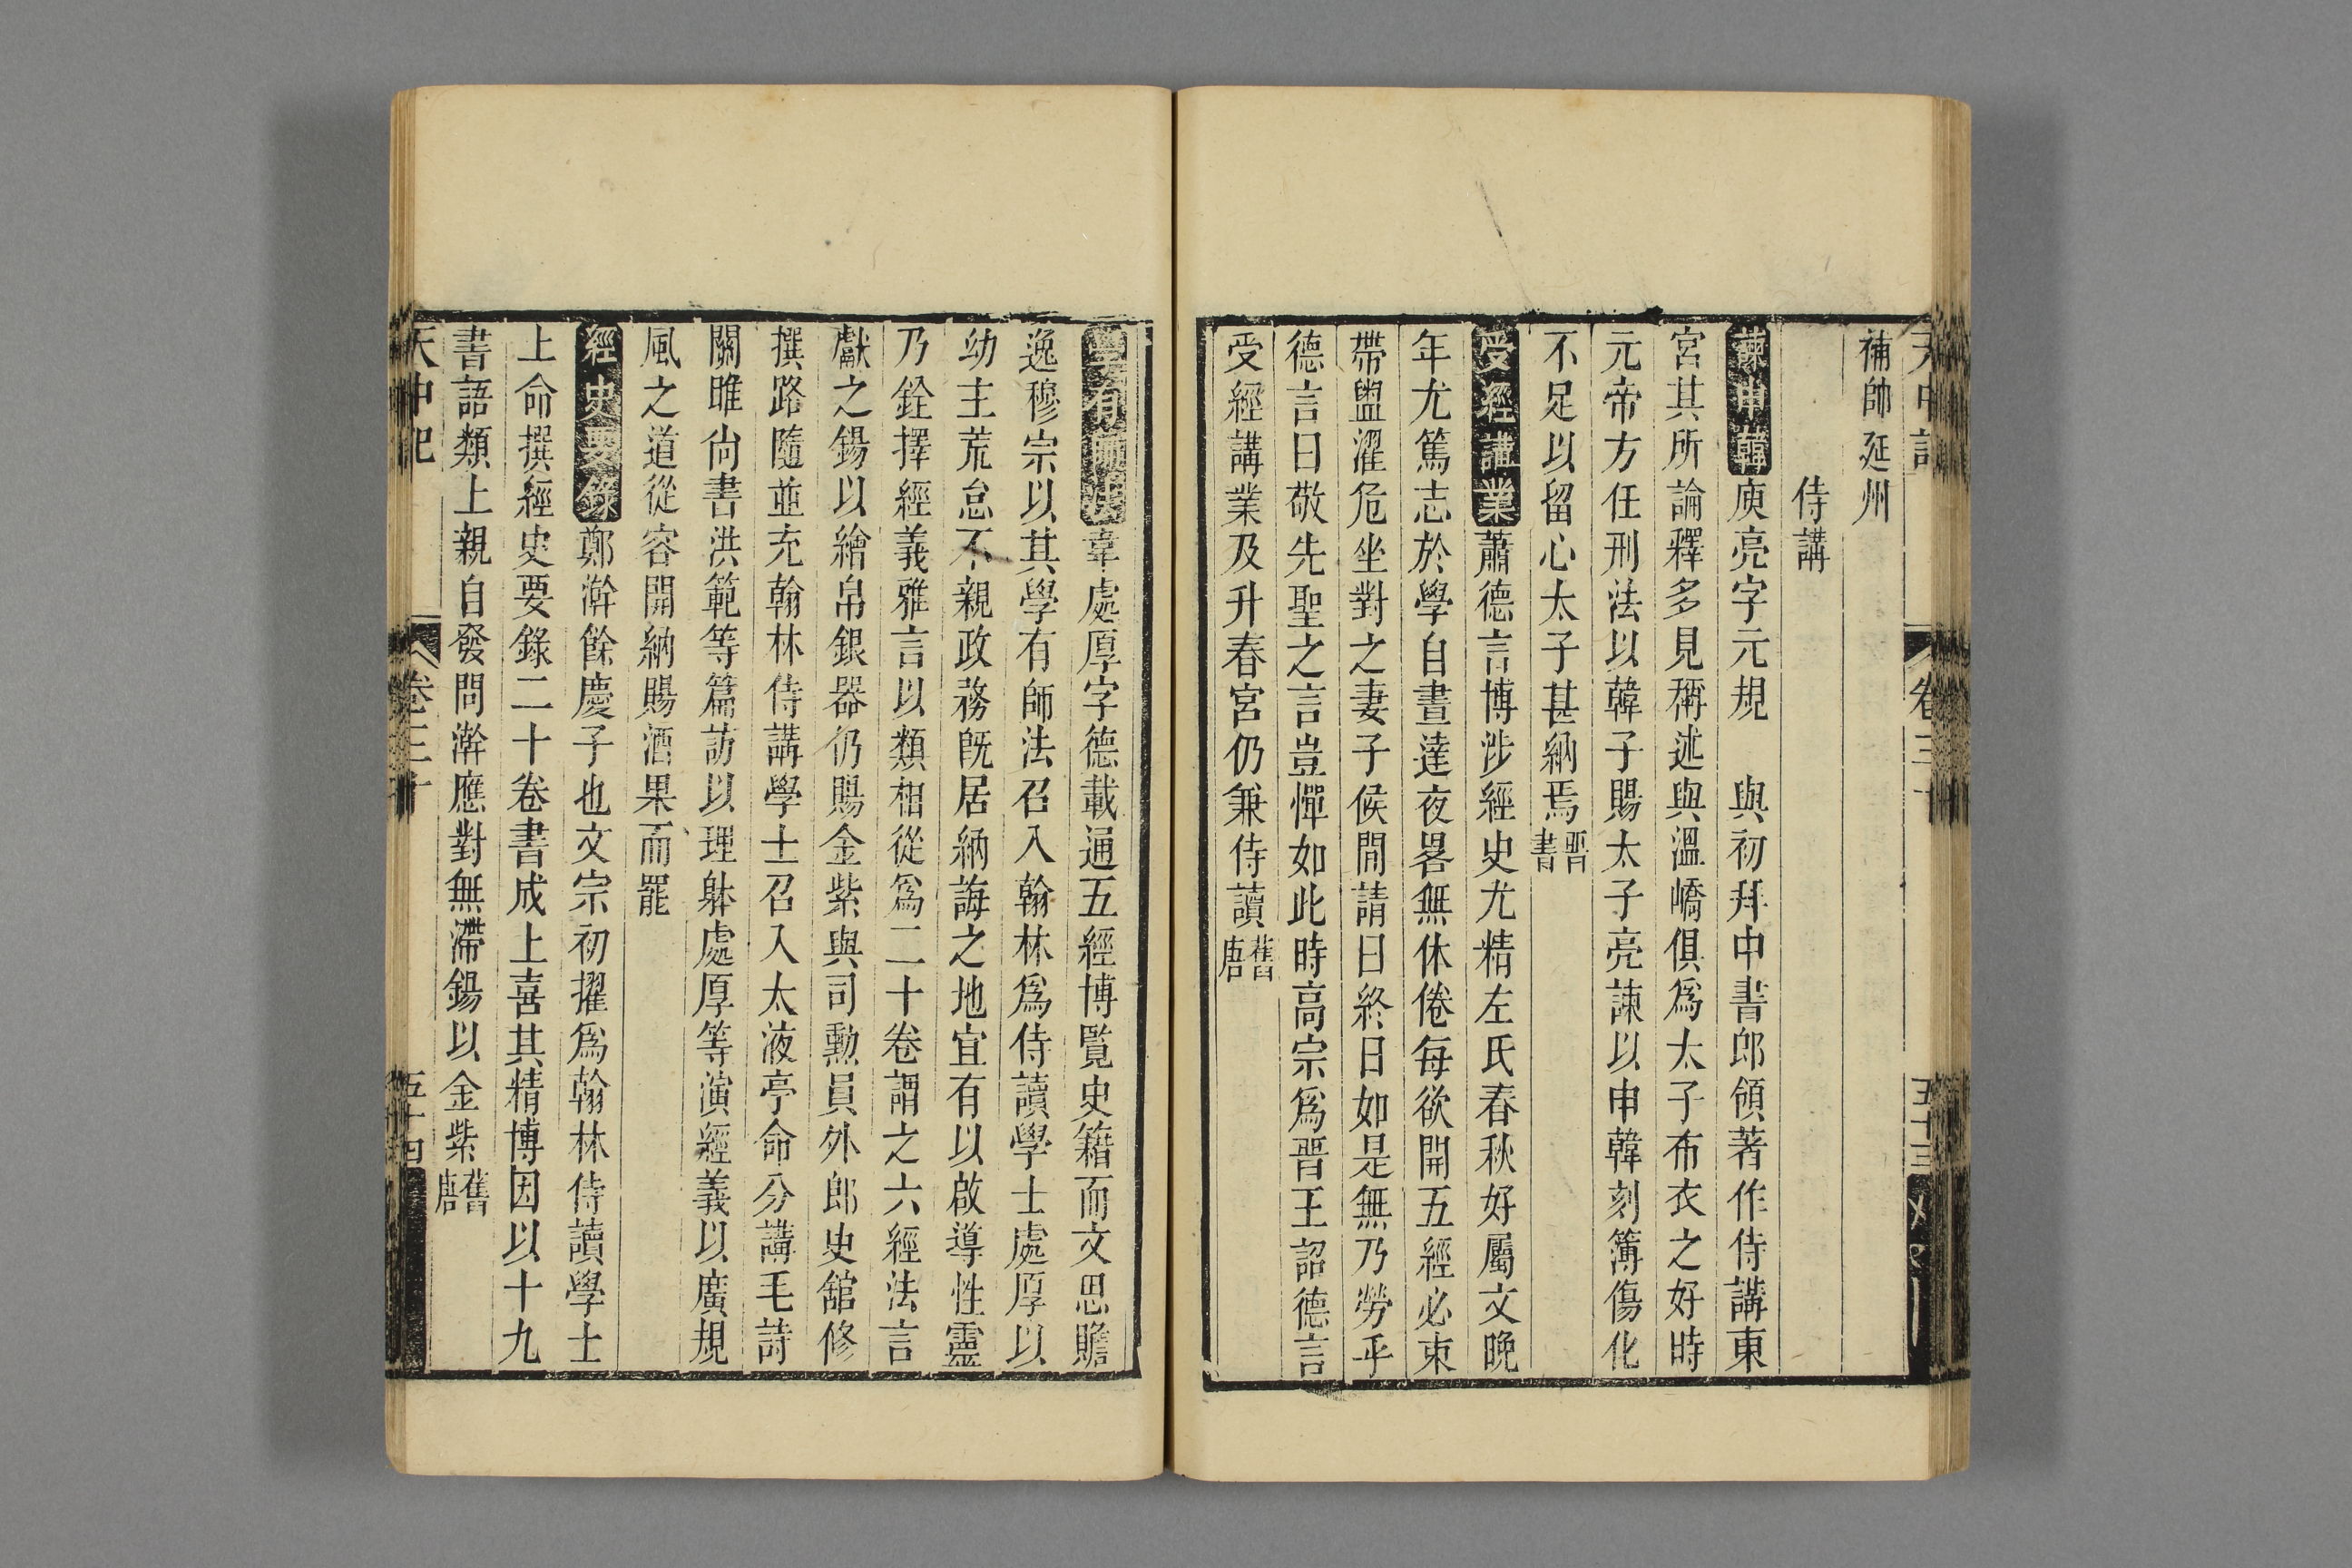 補帥延州
侍講
諫申韓庾亮字元規　與初拜中書郎領著作侍講東
宮其所論釋多見稱述與溫嶠俱爲太子布衣之好時
元帝方任刑法以韓子賜太子亮諫以申韓刻簿傷化
不足以留心太子甚納焉晋書
受經講業蕭德言博涉經史尤精左氏春秋好屬文晚
年尤篤志於學自晝達夜畧無休倦每欲開五經必束
帶盥濯危坐對之妻子候間請曰終日如是無乃勞乎
德言曰敬先聖之言豈憚如此時高宗爲晋王詔德言
受經講業及升春宮仍兼侍讀舊唐
學有師法韋處厚字德載通五經博覧史籍而文思贍
逸穆宗以其學有師法召入翰林爲侍讀學士處厚以
幼主荒怠不親政務旣居納誨之地宜有以啟導性靈
乃銓擇經義雅言以類相從爲二十卷謂之六經法言
獻之錫以繒帛銀器仍賜金紫與司勳員外郎史舘修
撰路隨並充翰林侍講學士召入太液亭命分講毛詩
關雎尙書洪範等篇訪以理躰處厚等演經義以廣規
風之道從容開納賜酒果而罷
經史要錄鄭澣餘慶子也文宗初擢爲翰林侍讀學士
上命撰經史要錄二十卷書成上喜其精博因以十九
書語類上親自發問澣應對無滯錫以金紫舊唐
天中記　卷三十　五十四